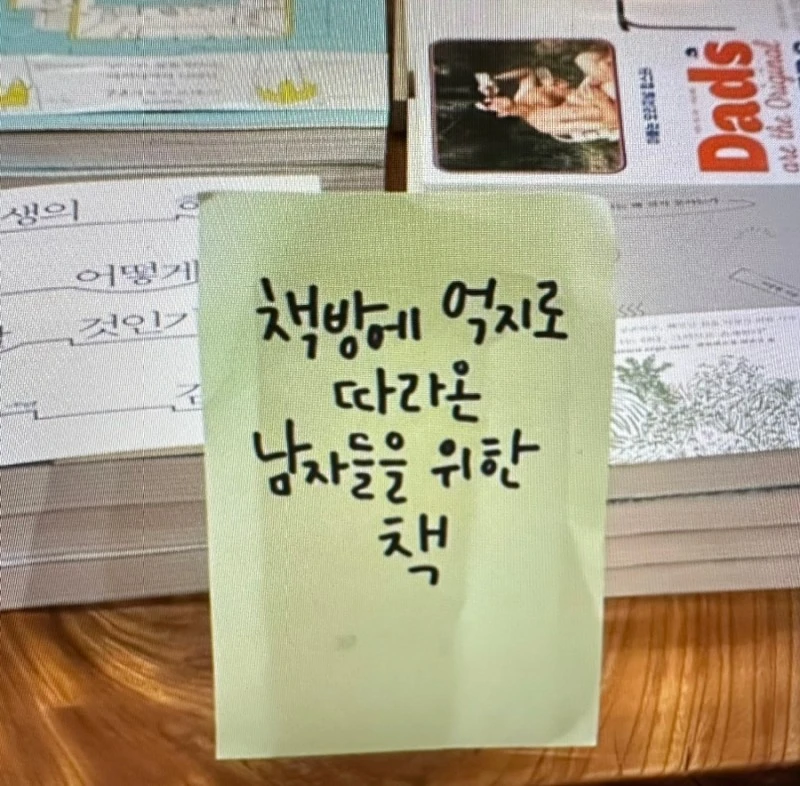 Dads
are the Original
생의
어떻게
것인가
책방에 억지로
따라온
남자들을 위한
책